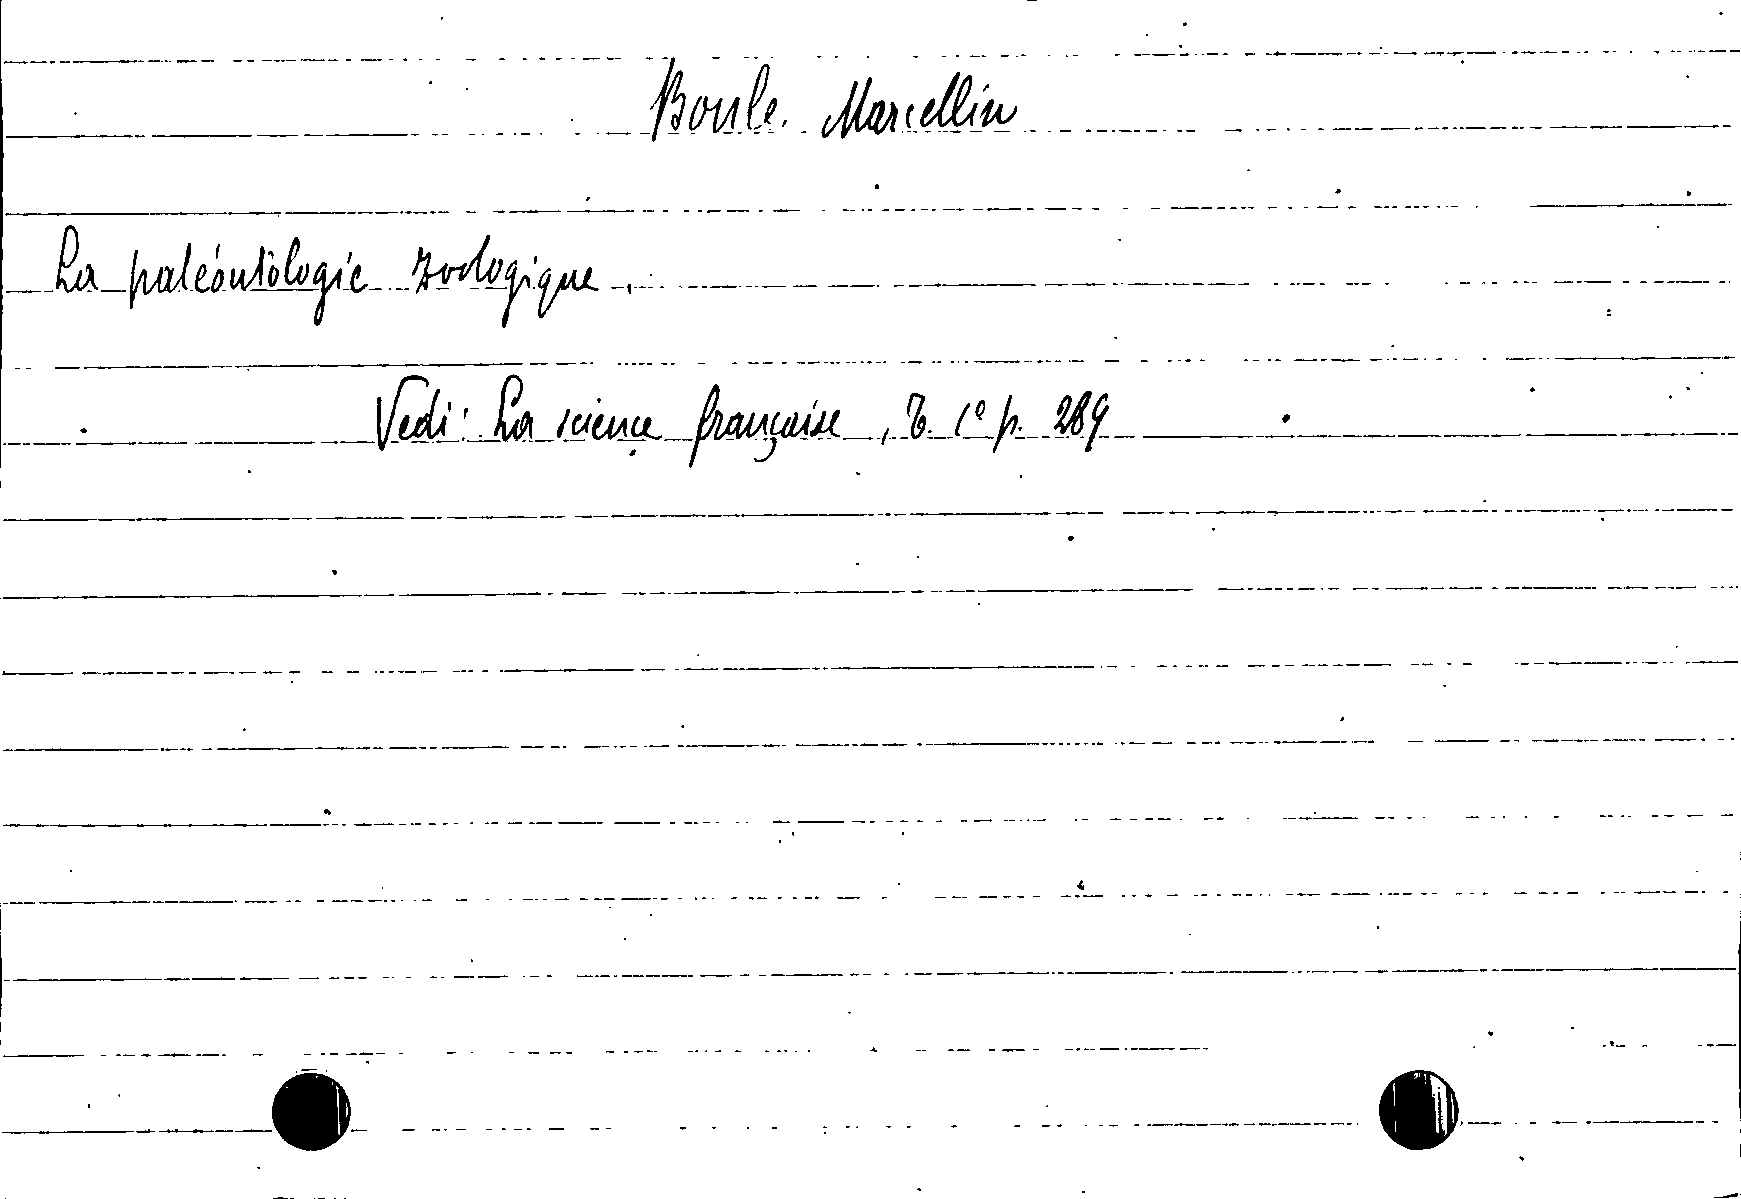 Boule. Marcellin
La paléontologie zoologique.
Vedi: La science française, T. 1º p. 289